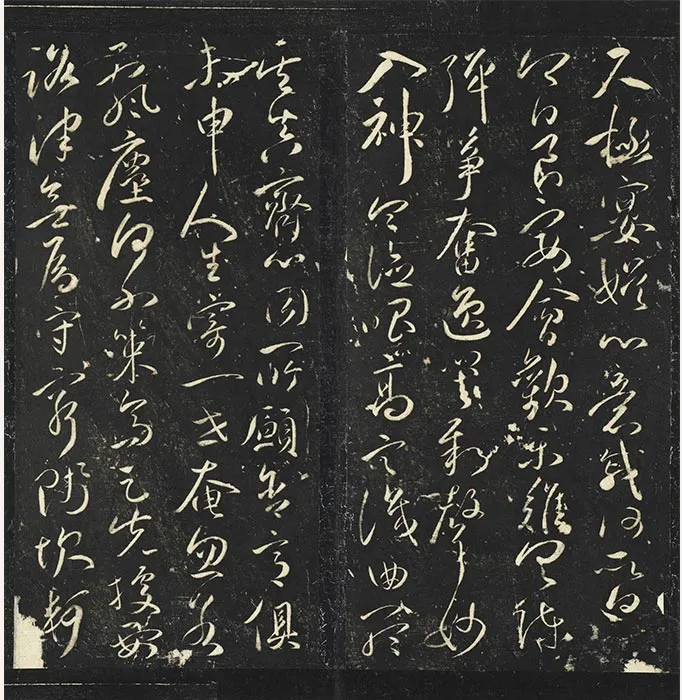 尺極宴娛心意戚〻何所迫
今日良宴會歡樂難具陳
彈箏奮逸響新聲妙
入神令德唱高言識曲聽
其真齊心同所願含意俱
未申人生寄一世奄忽若
飆塵何不策高足先據要
路津無為守窮賤坎軻